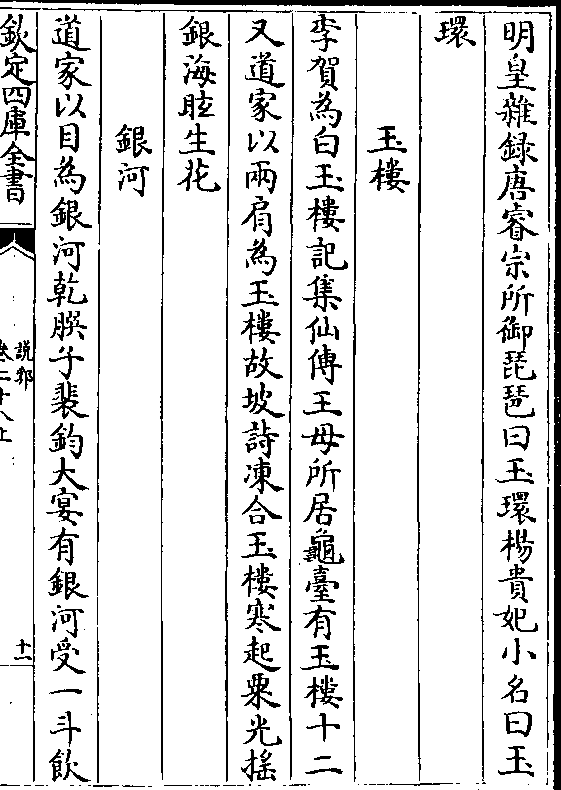 明皇雜録唐睿宗所御琵琶曰玉環楊貴妃小名曰玉
環
玉樓
李賀為白玉樓記集仙傳王母所居龜臺有玉樓十二
又道家以兩肩為玉樓故坡詩凍合玉樓寒起粟光搖
銀海眩生花
銀河
道家以目為銀河乾䐶子裴鈞大宴有銀河受一斗飲
欽定四庫全書
説郛
卷二十八上
十一